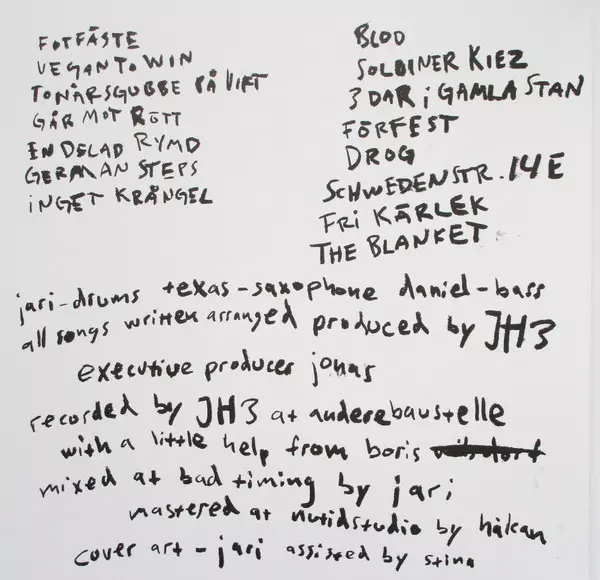 FOTFÄSTE
VEGAN TO WIN
TONÅRSGUBBE PÅ VIFT
GÅR MOT RÖTT
EN DELAD RYMD
GERMAN STEPS
iNGET KRÅNGEL
BLOD
SOLDINER KIEZ
3 DAR i GAMLA STAN
FÖRFEST
DROG
SCHWEDENSTR. 14E
FRi KÄRLEK
THE BLANKET
jari-drums texas-saxophone daniel-bass
all songs written arranged produced by JH3
executive producer jonas
recorded by JH3 at anderebaustelle
with a little help from boris
mixed at bad timing by jari
mastered at nutidstudio by håkan
cover art - jari assisted by stina